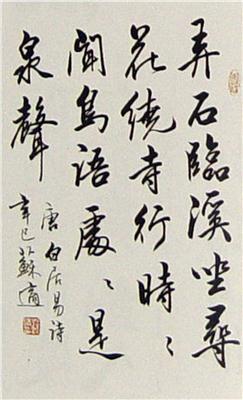 弄石臨溪坐尋
花繞寺行時〻
聞鳥語處〻是
泉聲
唐白居易詩
辛巳蘇適